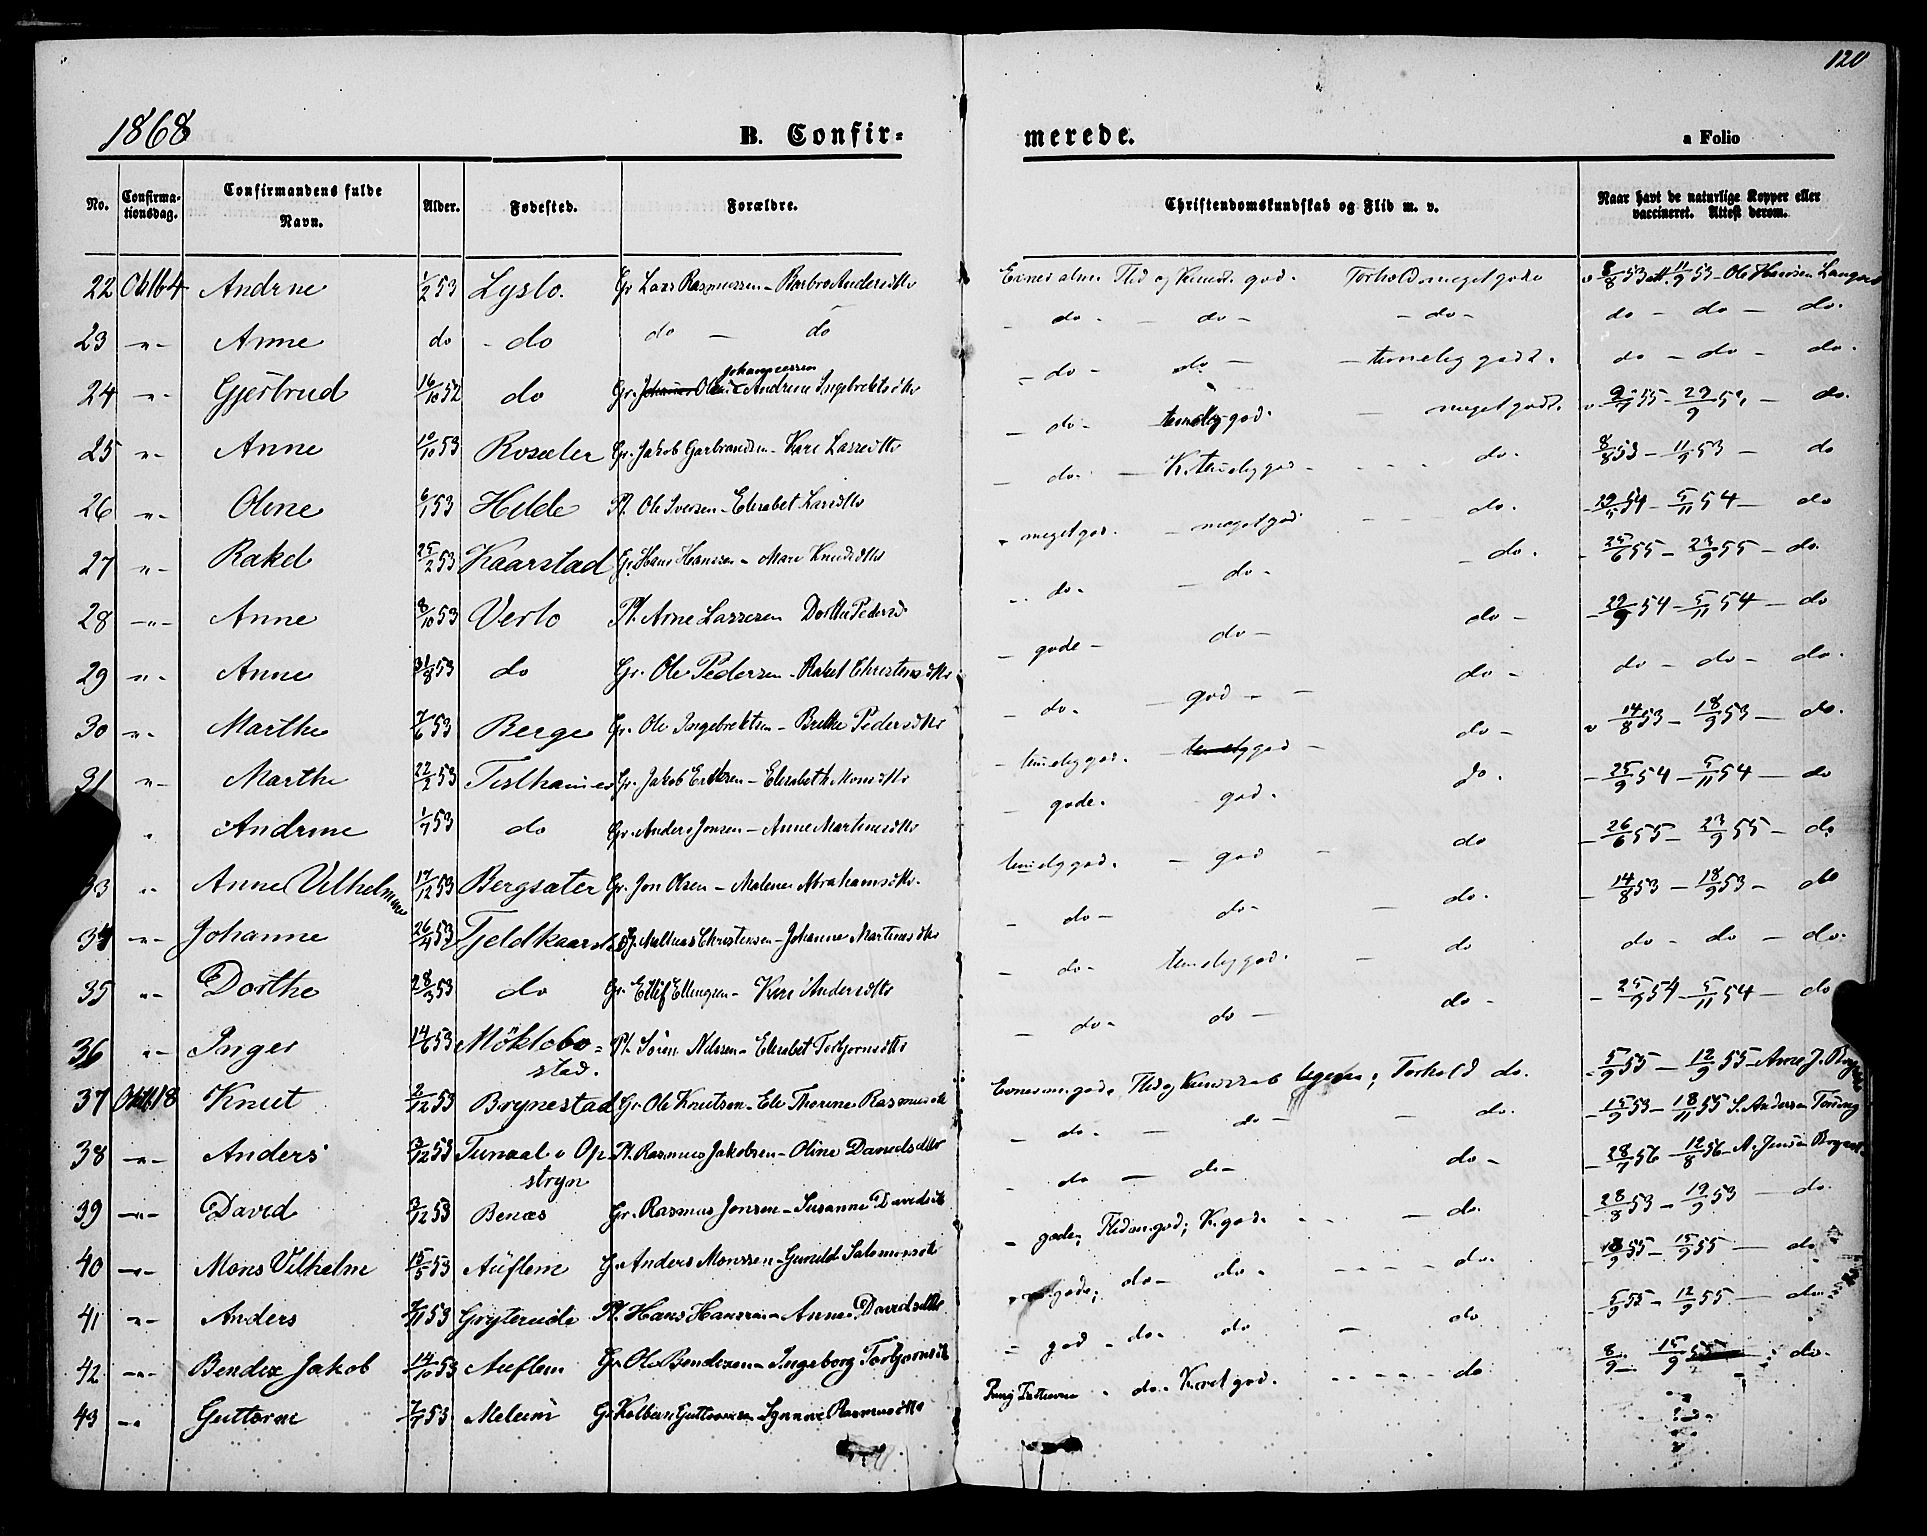 120
1868
B. Confir=
merede.
a Folio
No.
Confirma-
tionsdag.
Confirmandens fulde
Navn.
Alder.
Fødested.
Forældre.
Christendomskundskab og Flid m. v.
Naar havt de naturlige Kopper eller
vaccineret. Attest derom.
22 Andrine 1/2 53 Gr. Lars Rasmussen - Barbro Andersdtr Flid og god. Forhold meget gode 8/8 53 att. 11/9 53 - Ole
23 -"- Anne do - do do - do - do - - do - - do - do - do - do.
24 -"- Gjertrud 16/10 52 do Gr. Ole Johannessen Andrine Ingebrektsdtr - do - do - - temelig godt. do - do - do.
25 -"- Anne 53 Gr. Jakob Garbrandsen - Kari Lassedtr - do - temelig god. - meget godt. - do.
26 -"- Oline 6/1 53 Hilde Pl. Ole Iversen - Elisabet - do - K. temelig god - - - - do. 8/8 53 - 11/9 53 - do
27 -"- Rakel 25/2 53 Kaarstad Gr. Hans Hanssen - Mari Knudsdtr - meget god. - meget god - - - do. 54 - 5/11 54 - do
28 -"- Anne 8/10 53 Verlo Pl. Arne Lassesen Dorthe Pedersd - do - - do - - do. 25/6 55 - 23/9 55 - do.
29 -"- Anne 31/8 53 do Gr. Ole Pedersen - Rakel Christensdtr - gode - do - do - 54 - 5/11 54 - do
30 -"- Marthe 7/6 53 Berge Gr. Ole Ingebrektsen - Brithe Pedersdtr - do - - god - - do - do - do - do.
31 -"- Marthe 22/2 53 Gr. Jakob - Elisabeth Monsdtr - temelig god. - temelig god - do - 14/8 53 - 18/9 53 - do.
Andrine 1/7 53 do Gr. Anders Jonsen - Anne Martinusdtr - gode. god. do. 25/9 54 - 5/11 54 - do
33 -"- Anne Vilhelmine 17/12 53 Bergsæter Gr. Jon Olsen - Malene Abrahamsdtr. temelig god. - god - do 26/6 55 - 23/9 55 - do
34 -"- Johanne 26/4 53 Gr. Mathias Christensen - Johanne Martinusdtr - do - do - - do. 14/8 53 - 18/9 53 - do
35 -"- Dorthe 28/3 53 do Gr. Ellif Ellingsen - Kari Andersdtr - do - temelig god. - do do - do - do.
36 -"- Inger 14/6 53 Møklebo=
stad. Pl. Søren Nilssen - Elisabet Torbjørnsdtr - do - do - do - 25/9 54 - 5/11 54 - do
37 Knut 2/12 53 Brynestad Gr. Ole Knutsen - Ele Thorine Rasmusdtr Forhold do. 5/9 55 - 12/9 55 -
38 -"- Anders 53 Tunaal i Op
stryn Pl. Rasmus Jakobsen - Oline Danielsdtter - do - - do - - do. 15/9 53 - 18/11 55 S. Andersen
39 -"- David 3/12 53 Benæs Gr. Rasmus Jonsen - Susanne Davidsdtr - do - do - do - 28/7 56 - 12/8 56 - A. Jensen
40 -"- Mons Vilhelm 15/5 53 Auflem Gr. Anders Monssen - Gunild Salomonsdtr - gode; K. god. - - - do. 28/8 53 - 19/9 53 - do.
41 -"- Anders 53 Gryterude Pl. Hans Hanssen - Anne Davidsdtter gode; do - do - - - - - do. 55 - 15/9 55 - do
42 -"- Bendix Jakob 14/10 53 Auflem Gr. Ole Bendixen - Ingeborg Torbjørnsdtr - god - do - do - do 5/9 55 - 12/9 55 - do
43 -"- Guttorm 53 Melem Gr. Kolbein Guttormsen - Synneve Rasmusdtr - do - god. - - - - do 8/9 - 15/9 55 do.